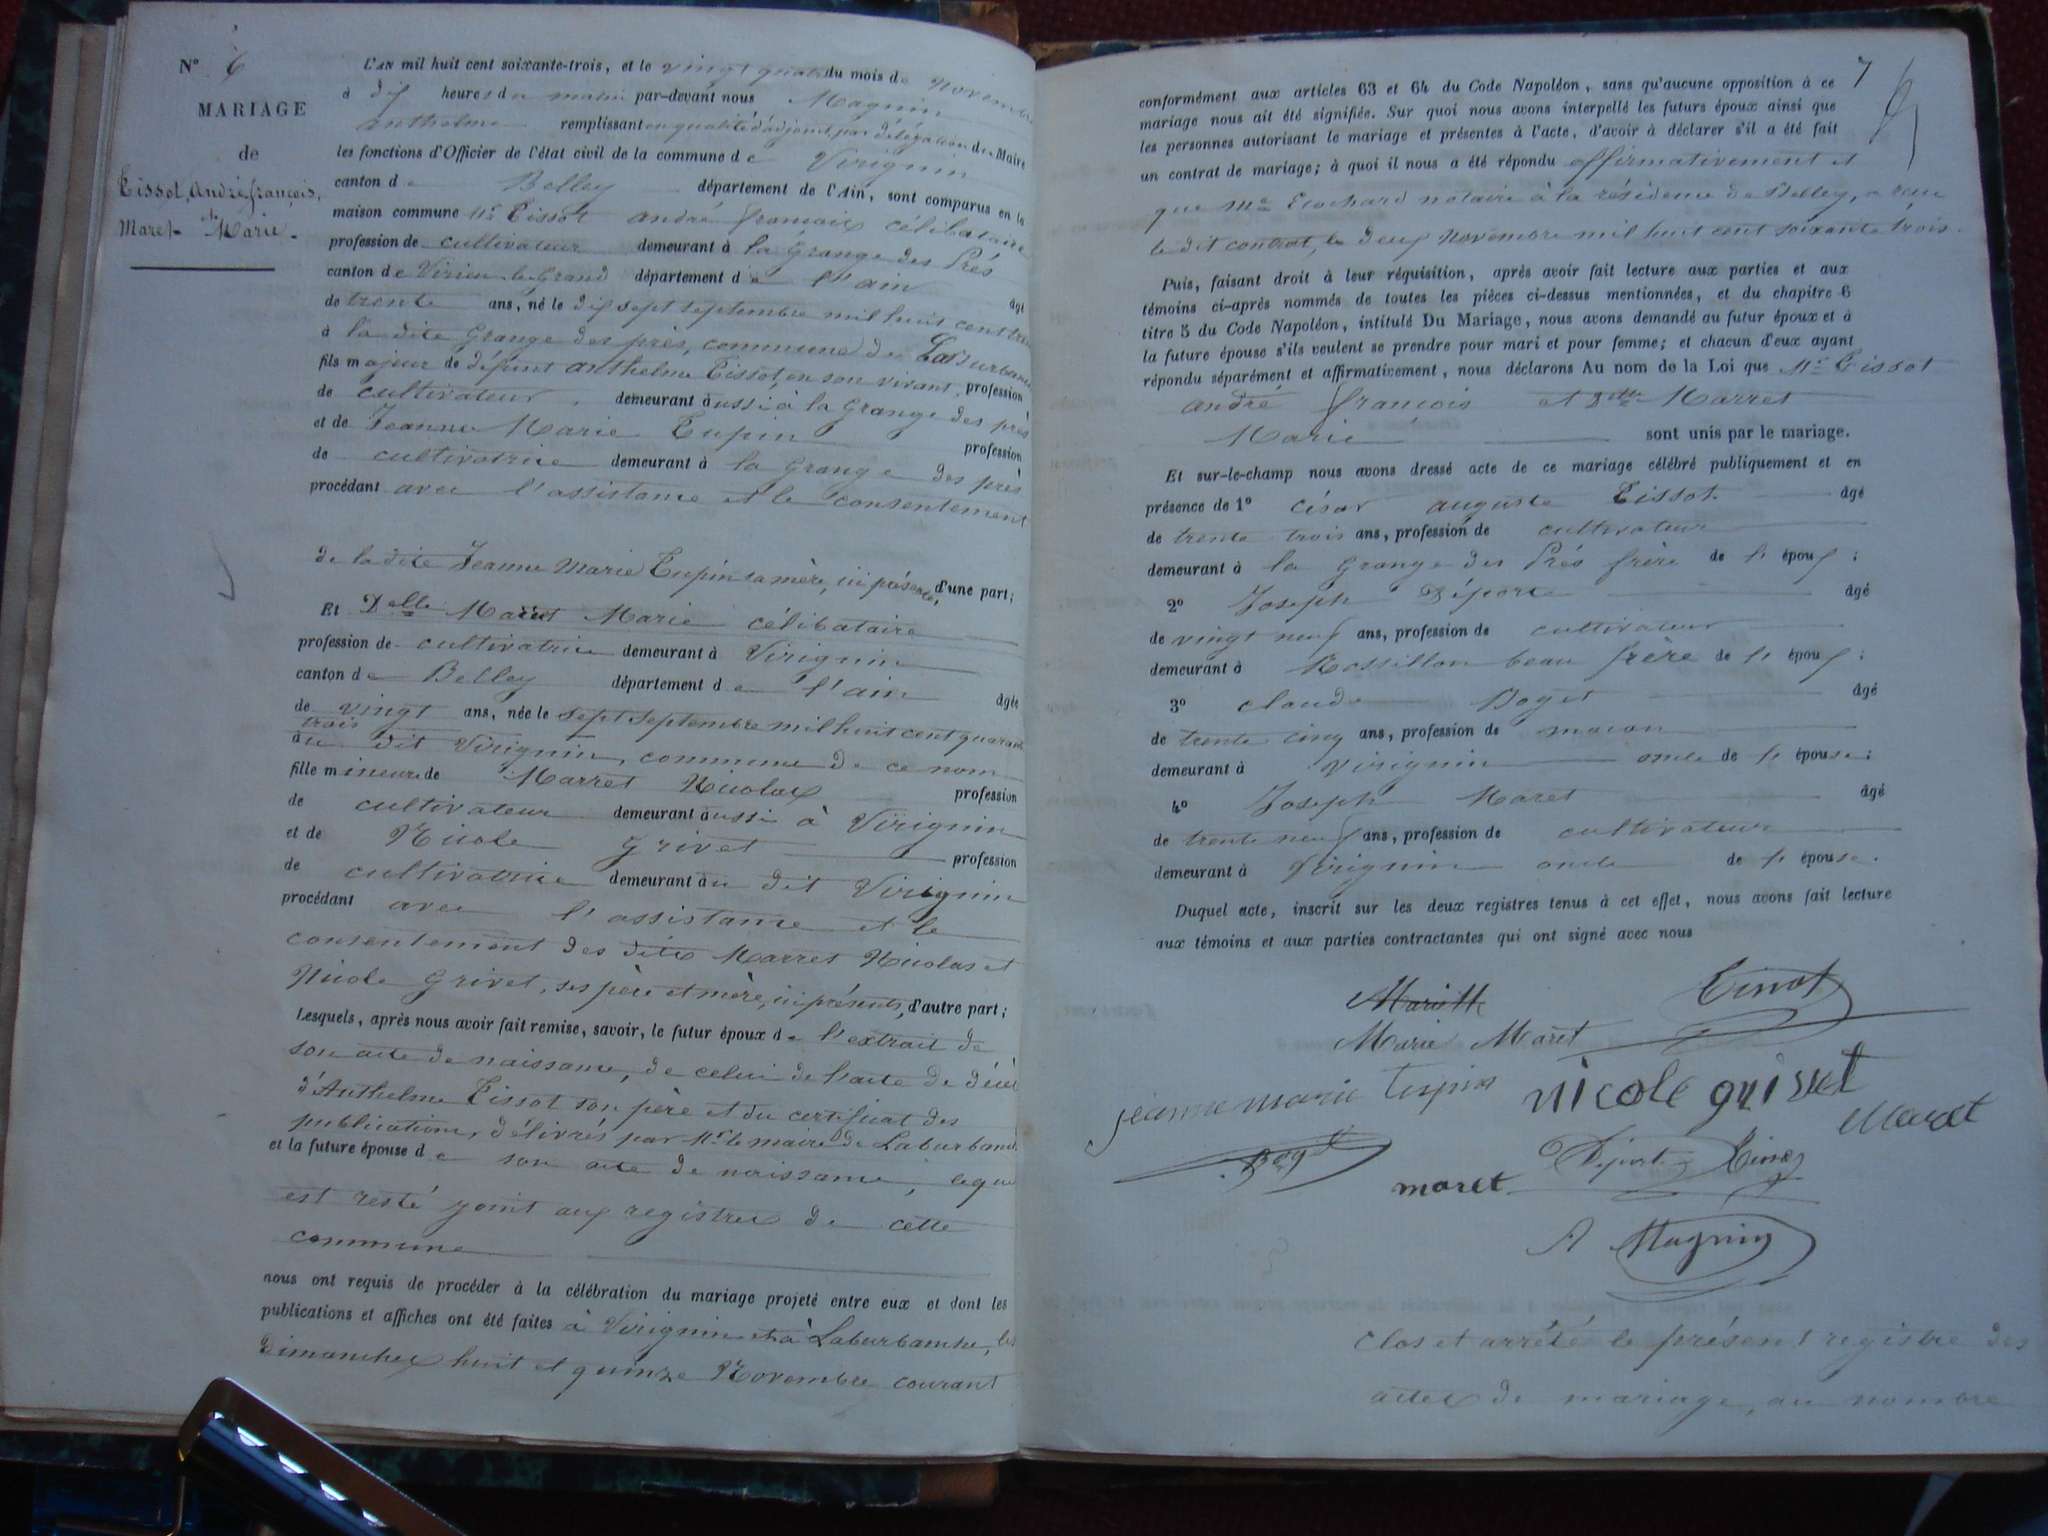 N° 6
MARIAGE
de
Tissot, André françois,
et
Maret Marie.
L'AN mil huit cent soixante-trois, et le vingt quatre du mois de Novembre
à dix heures du matin par-devant nous Magnin
anthelme remplissant en qualité d'adjoint, par délégation du Maire
les fonctions d'Officier de l'état civil de la commune de Virignin
canton de Belley département de l'Ain, sont comparus en la
maison commune Mr Tissot andré francois célibataire
profession de cultivateur demeurant à la Grange des Prés
canton de Virieu-le-Grand département de l'ain âgé
de trente ans, né le dix sept septembre mil huit cent trente
à la dite Grange des près, commune de Laburbanche
fils majeur de défunt anthelme Tissot, en son vivant, profession
de cultivateur, demeurant aussi à la Grange des près
et de Jeanne Marie Tupin profession
de cultivatrice demeurant à la Grange des près
procédant avec l'assistance et le consentement
de la dite Jeanne Marie Tupin sa mère, ici présente, d'une part;
Et Delle Maret Marie célibataire
profession de cultivatrice demeurant à Virignin
canton de Belley département de l'ain âgée
de vingt ans, née le sept septembre mil huit cent quarante
trois
au dit Virignin, commune de ce nom
fille mineure de Marret Nicolas profession
de cultivateur demeurant aussi à Virignin
et de Nicole Grivet profession
de cultivatrice demeurant au dit Virignin
procédant avec l'assistance et le
consentement des dits Marret Nicolas et
Nicole Grivet, ses père et mère, ici présents, d'autre part;
Lesquels, après nous avoir fait remise, savoir, le futur époux de l'extrait de
son acte de naissance, de celui de l'acte de décès
d'Anthelme Tissot son père et du certificat des
publications, délivrés par Mr le maire de Laburbanche
et la future épouse de son acte de naissance, lequel
est resté joint aux registres de cette
commune
nous ont requis de procéder à la célébration du mariage projeté entre eux et dont les
publications et affiches ont été faites à Virignin et à Laburbanche, les
Dimanches huit et quinze Novembre courant
7
conformément aux articles 63 et 64 du Code Napoléon, sans qu'aucune opposition à ce
mariage nous ait été signifiée. Sur quoi nous avons interpellé les futurs époux ainsi que
les personnes autorisant le mariage et présentes à l'acte, d'avoir à déclarer s'il a été fait
un contrat de mariage; à quoi il nous a été répondu affirmativement et
que Me notaire à la résidence de Belley, a reçu
le dit contrat, le deux Novembre mil huit cent soixante trois.
Puis, faisant droit à leur réquisition, après avoir fait lecture aux parties et aux
témoins ci-après nommés de toutes les pièces ci-dessus mentionnées, et du chapitre 6
titre 5 du Code Napoléon, intitulé Du Mariage, nous avons demandé au futur époux et à
la future épouse s'ils veulent se prendre pour mari et pour femme; et chacun d'eux ayant
répondu séparément et affirmativement, nous déclarons Au nom de la Loi que Mr Tissot
andré francois et Dlle Marret
Marie sont unis par le mariage.
Et sur-le-champ nous avons dressé acte de ce mariage célébré publiquement et en
présence de 1° césar auguste Tissot âgé
de trente trois ans, profession de cultivateur
demeurant à la Grange des Prés frère de l'époux;
2° Joseph Déporte âgé
de vingt neuf ans, profession de cultivateur
demeurant à Rossillon beau frère de l'époux;
3° claude Boget âgé
de trente cinq ans, profession de macon
demeurant à Virignin oncle de l'épouse;
4° Joseph Maret âgé
de trente neuf ans, profession de cultivateur
demeurant à Virignin oncle de l'épouse.
Duquel acte, inscrit sur les deux registres tenus à cet effet, nous avons fait lecture
aux témoins et aux parties contractantes qui ont signé avec nous
Tissot
Marie Maret
jeanne marie tupin nicole grivet
Maret
Boget Déporte Tissot
maret
A Magnin
Clos et arrêté le présent registre des
actes de mariage, au nombre